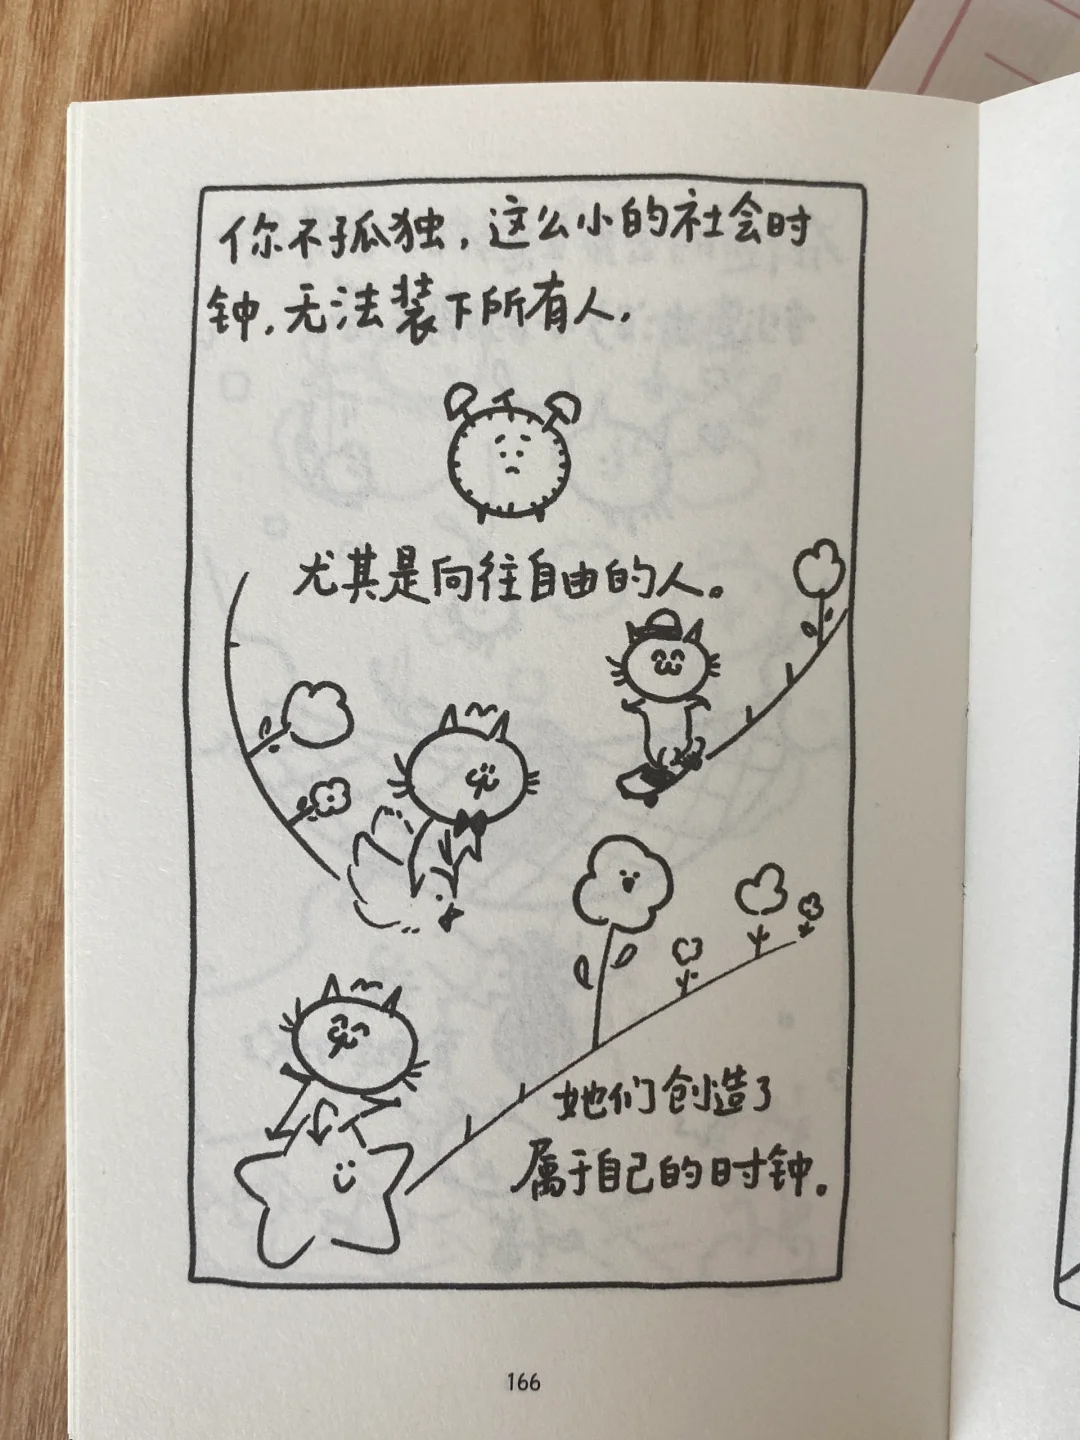 你不孤独，这么小的社会时
钟，无法装下所有人，
尤其是向往自由的人。
她们创造了
属于自己的时钟。
166